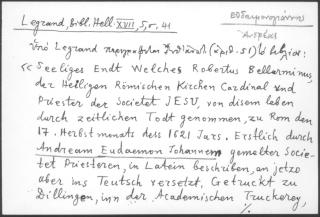 εὐδαιμονοϊωάννης
Ἀνδρέας
Legrand, Bibl. Hell. XVII, 5, σ. 41
ὑπὸ Legrand περιγράφεται (ἀριθ. 51) ἑξῆς:
« Seeliges Endt Welches Robertus Bellarminus,
der Heiligen Römischen Kirchen Cardinal und
Priester der Societet JESU, von disem leben
durch zeitlichen Todt genommen, zu Rom den
17. Herbstmonats dess 1621 Jars. Erstlich durch
Andream Eudaemon Johannem gemelter Socie-
tet Priesteren, in Latein beschriben, an jetzo
aber ins Teutsch versetzt, Getruckt zu
Dillingen, inn der Academischen Truckerey,